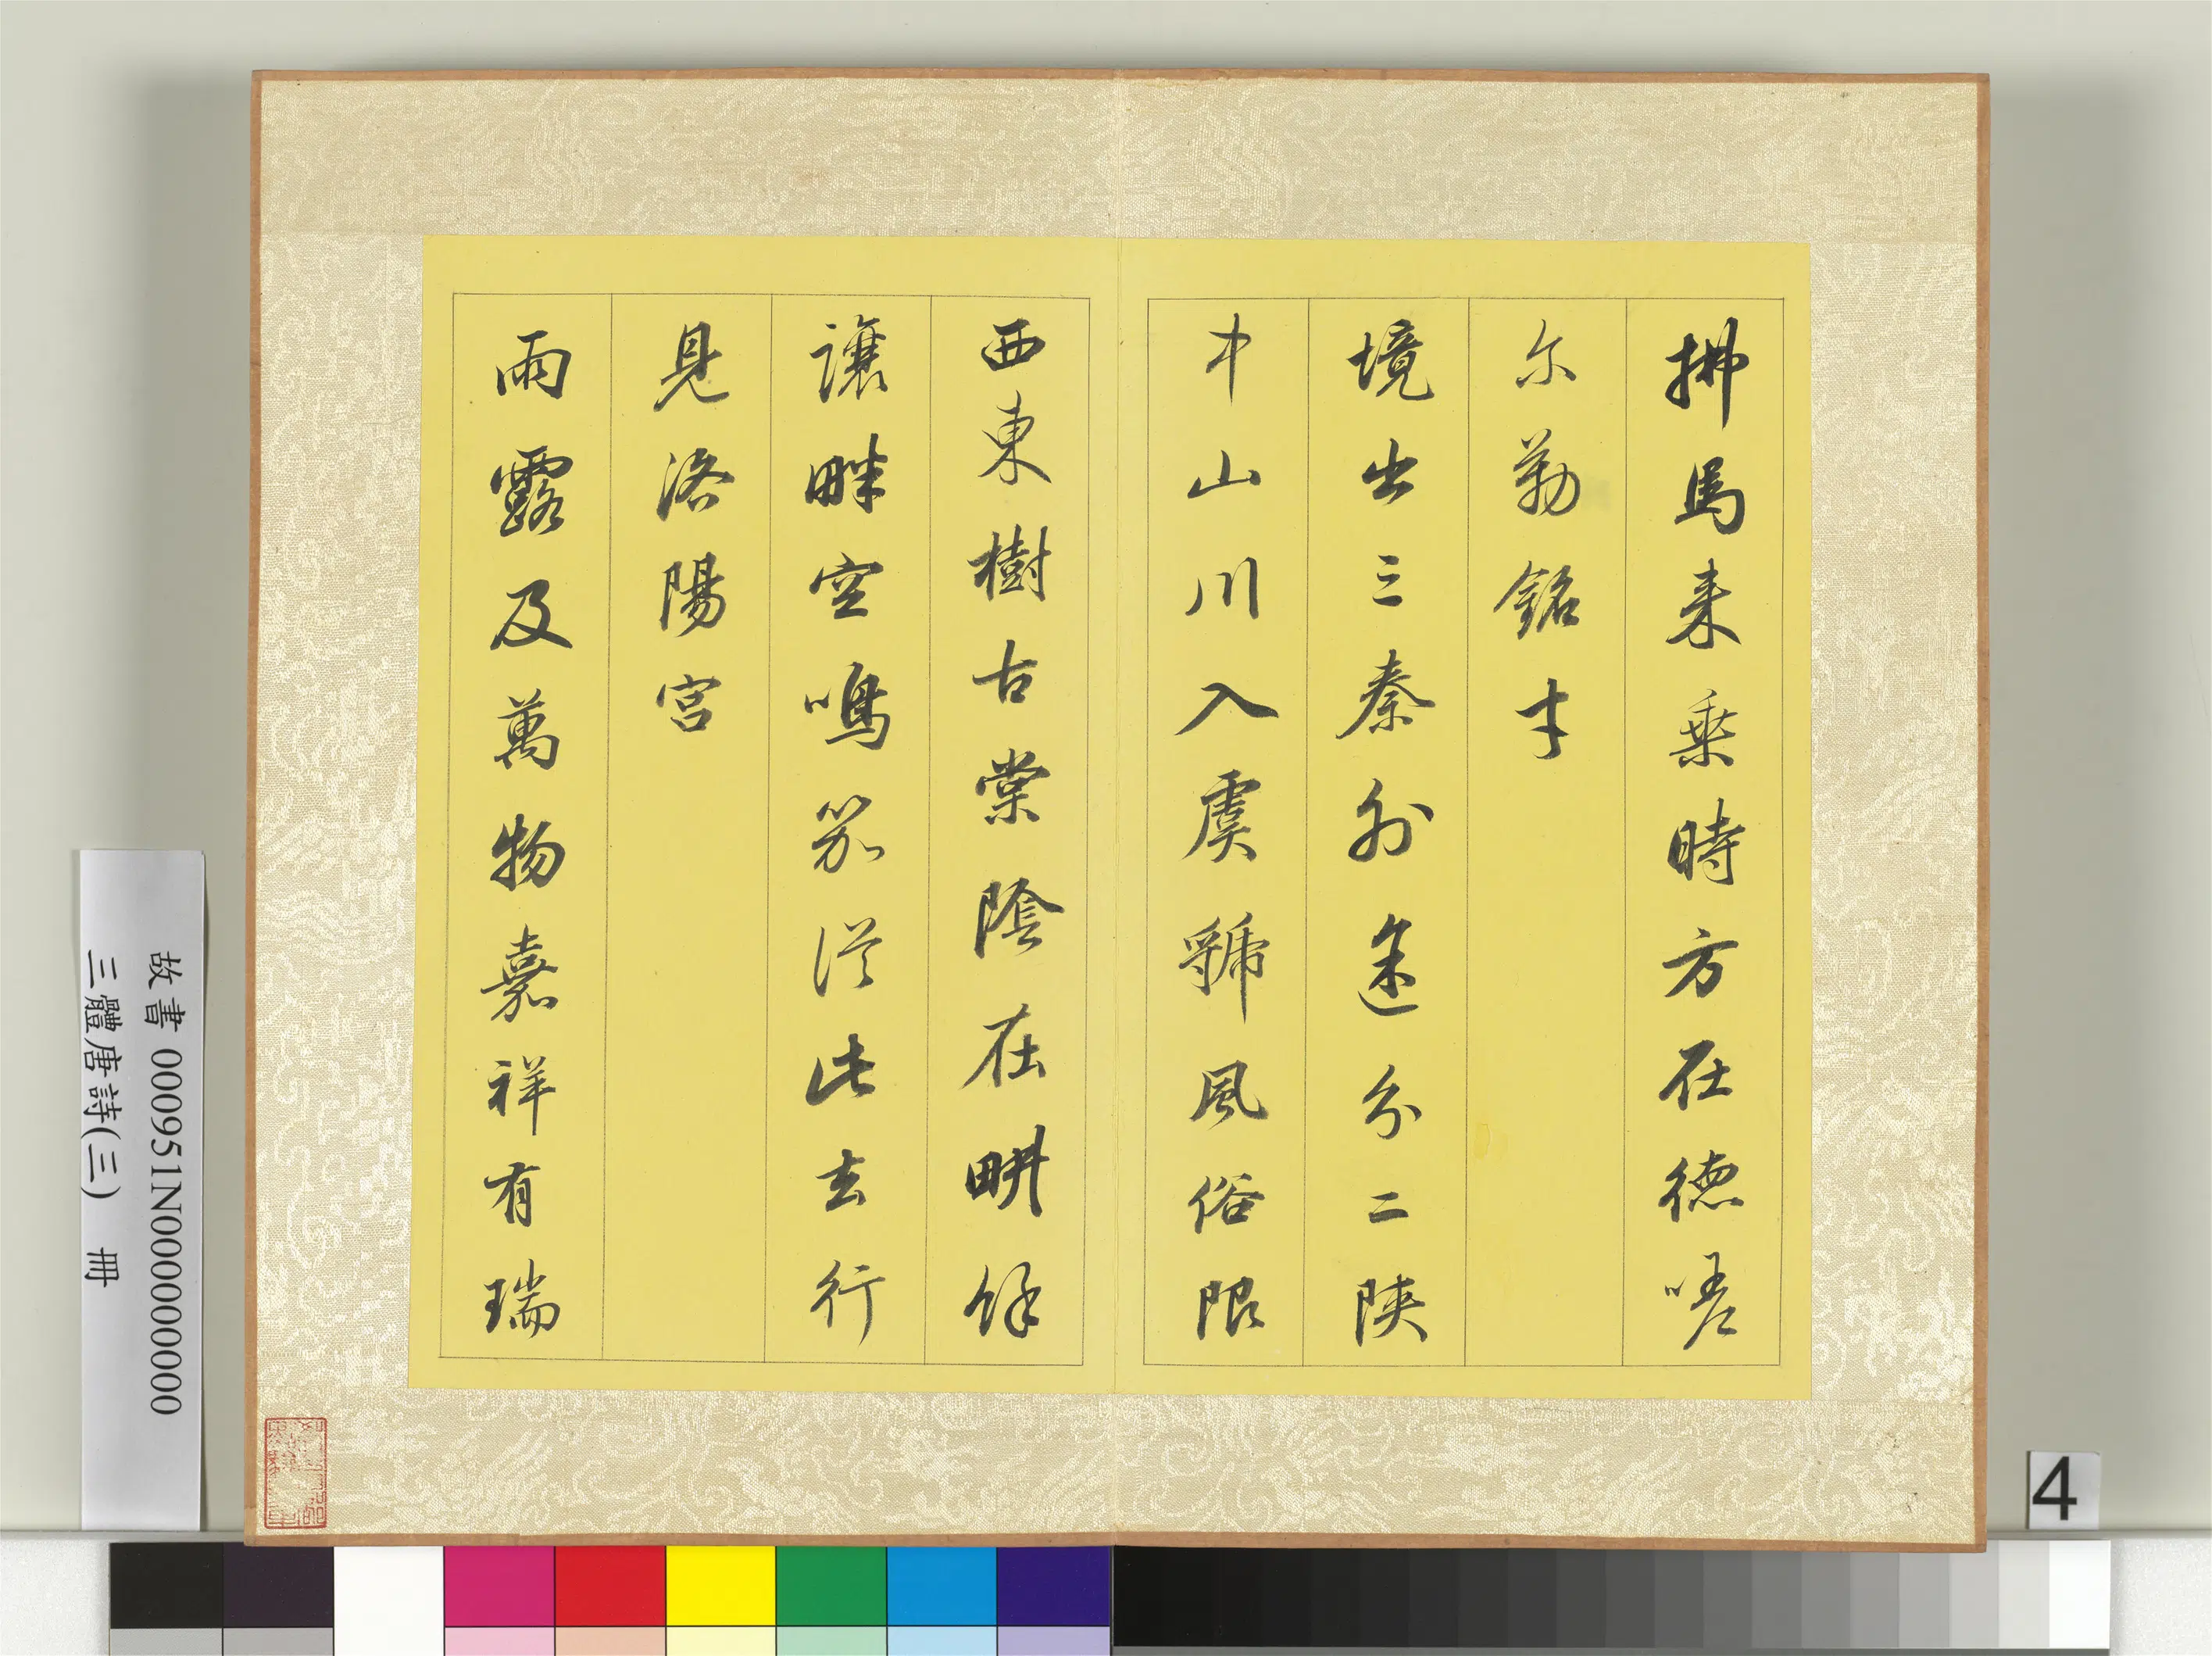 拂馬來乘時方在德嗟
尔勒銘才
境出三秦外途分二陝
中山川入虞虢風俗限
西東樹古棠陰在畊餘
讓畔空鳴笳從此去行
見洛陽宮
雨露及萬物嘉祥有瑞
故書 000951N000000000
三體唐詩(三) 冊
4